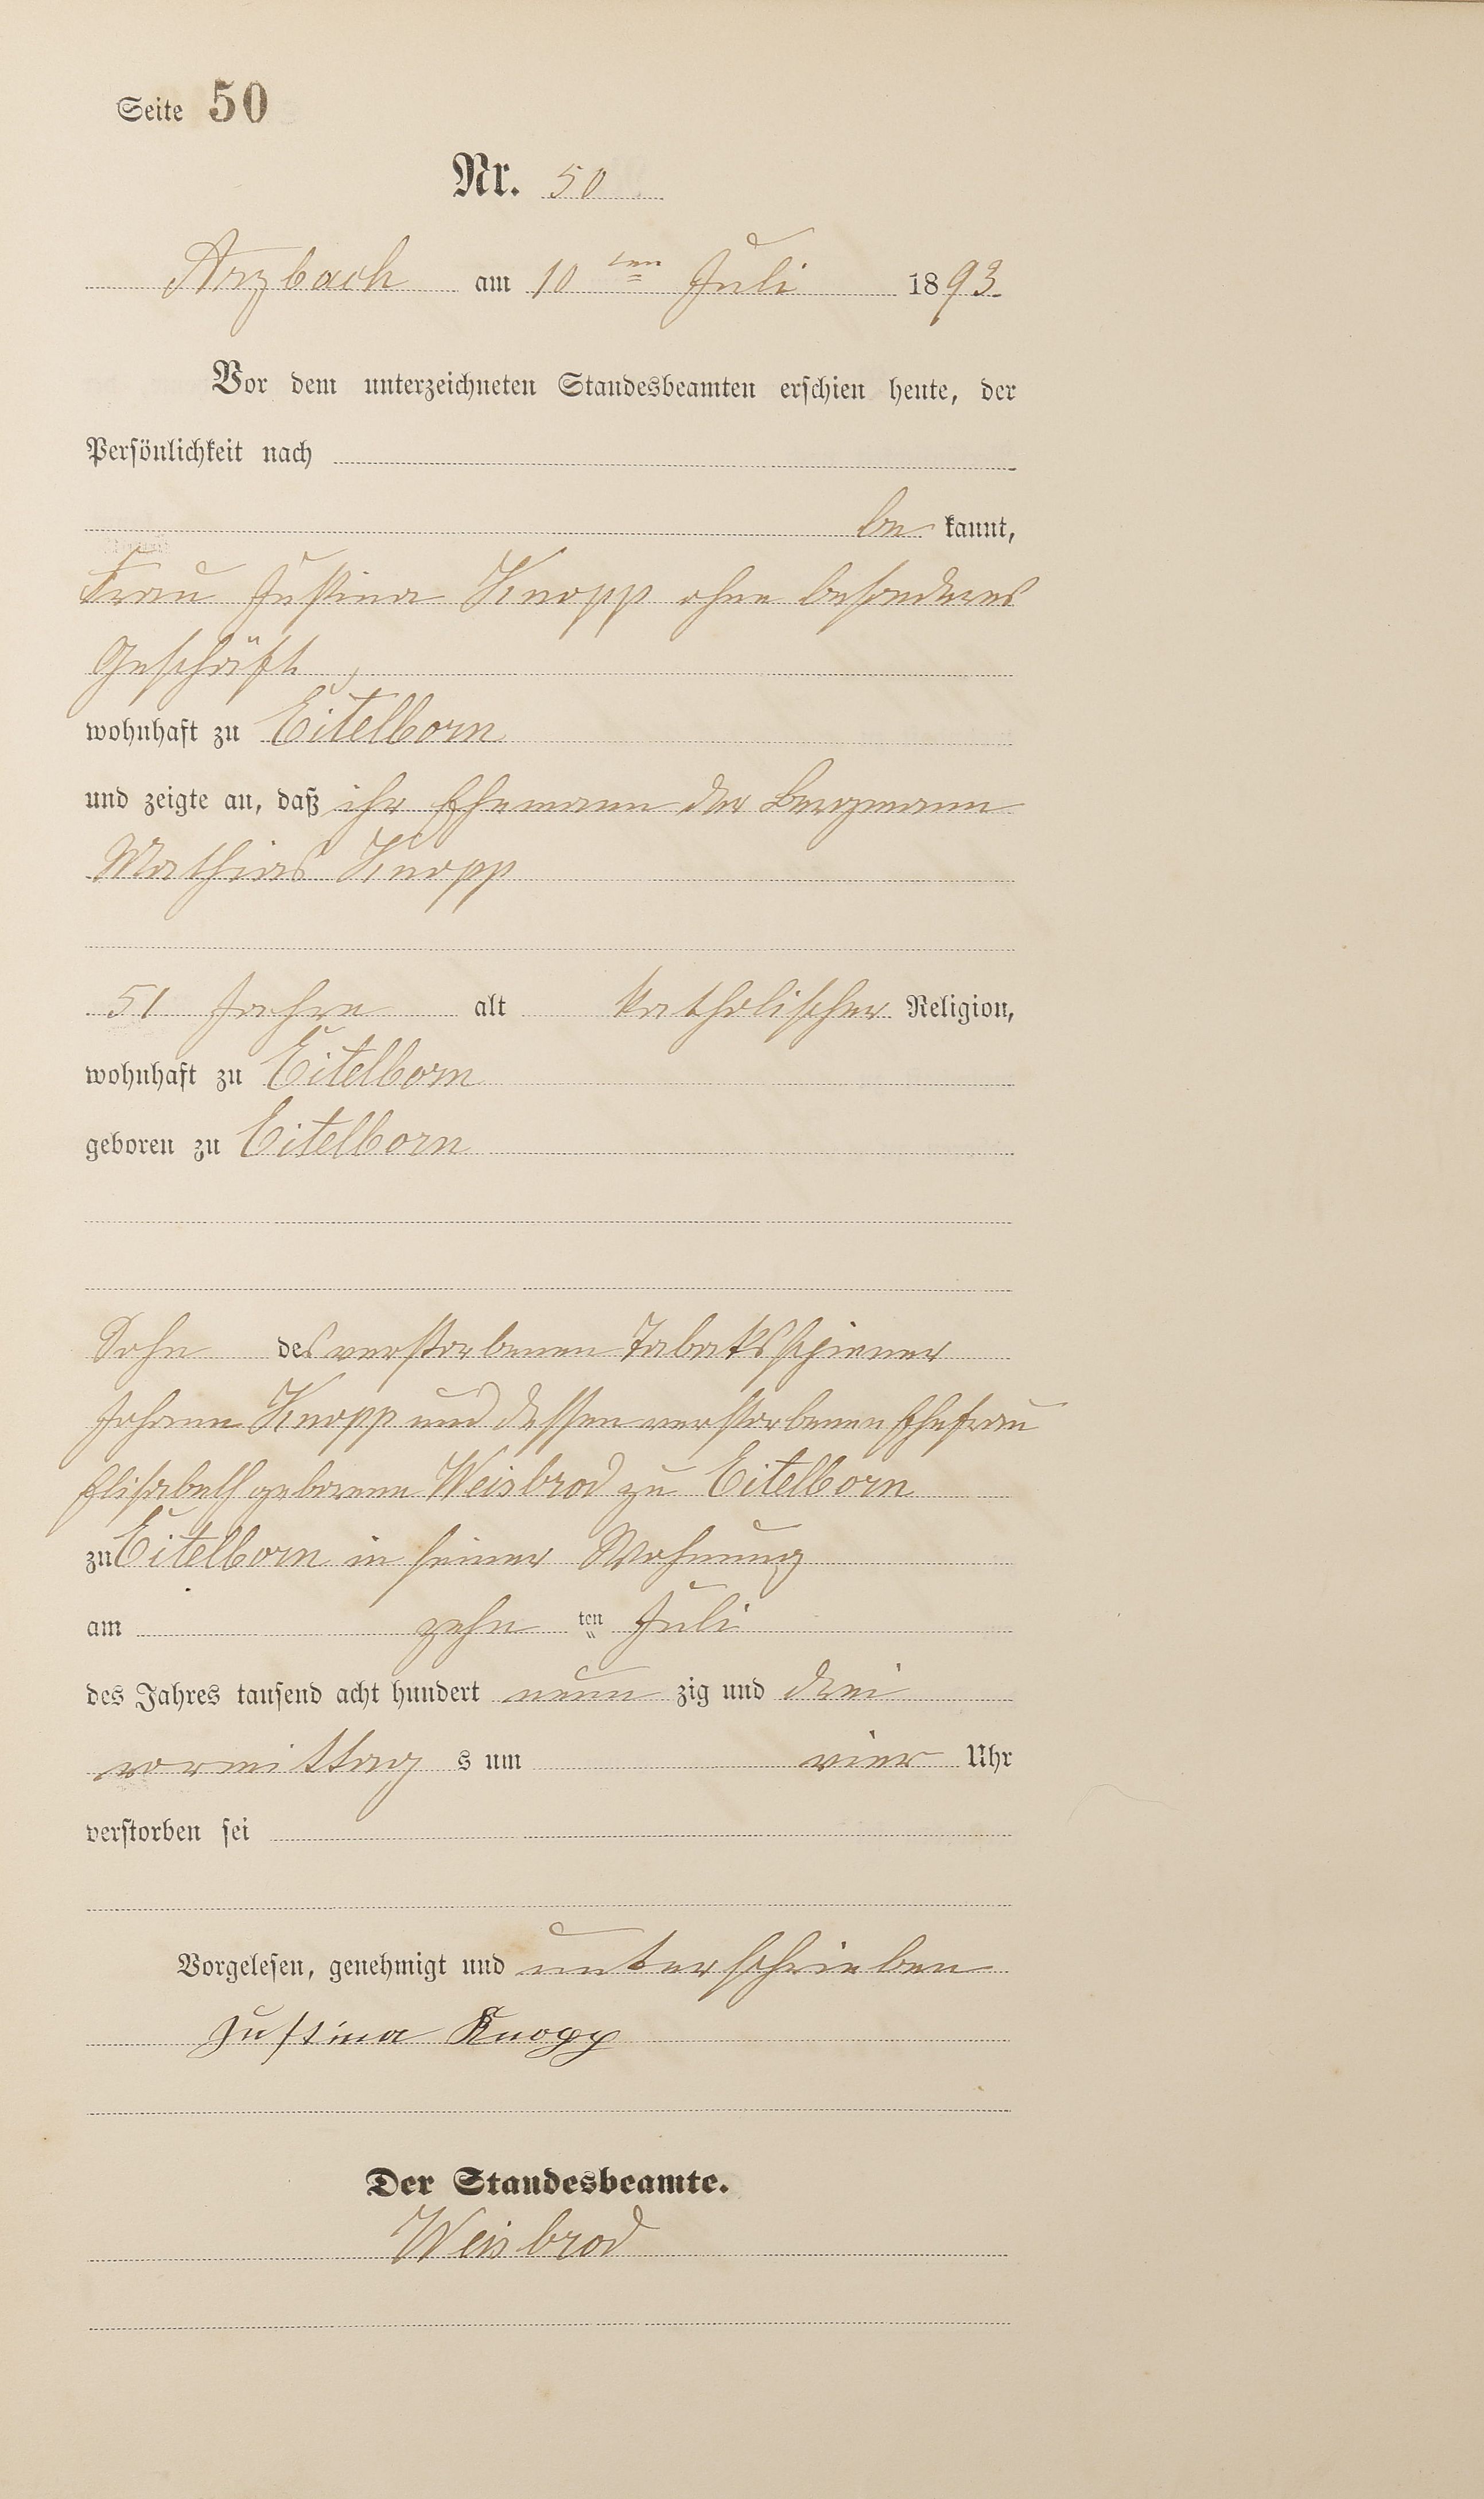 Seite 50
Nr. 50
Arzbach am 10 ten Juli 1893.
Vor dem unterzeichneten Standesbeamten erschien heute, der
Persönlichkeit nach
be kannt,
Frau Justina Knopp ohne besonderes
Geschäft,
wohnhaft zu Eitelborn
und zeigte an, daß ihr Ehemann der Bergmann
Mathias Knopp
51 Jahre alt katholischer Religion,
wohnhaft zu Eitelborn
geboren zu Eitelborn
Sohn des verstorbenen Tabaksspinner
Johann Knopp und dessen verstorbenen Ehefrau
Elisabeth geborene Weisbrod zu Eitelborn
zu Eitelborn in seiner Wohnung
am zehn ten Juli
des Jahres tausend acht hundert neun zig und drei
vormittag s um vier Uhr
verstorben sei
Vorgelesen, genehmigt und unterschrieben
Justina Knopp
Der Standesbeamte.
Weisbrod